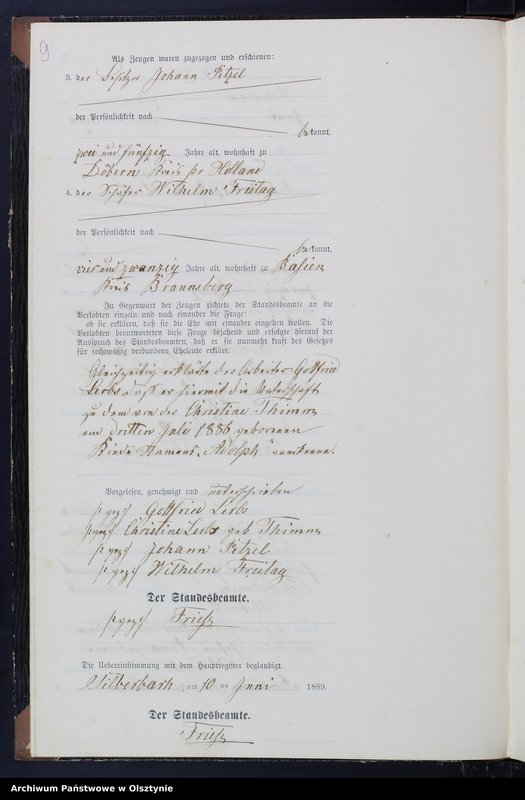 9
Als Zeugen waren zugezogen und erschienen:
3. der Besitzer Johann Petzel
der Persönlichkeit nach
bekannt,
zwei und fünfzig Jahre alt, wohnhaft zu
Döbern Kreis Pr Holland
4. der Schäfer Wilhelm Freitag
der Persönlichkeit nach
bekannt,
vier und zwanzig Jahre alt, wohnhaft zu Basien
Kreis Braunsberg
In Gegenwart der Zeugen richtete der Standesbeamte an die
Verlobten einzeln und nach einander die Frage:
ob sie erklären, daß sie die Ehe mit einander eingehen wollen. Die
Verlobten beantworteten diese Frage bejahend und erfolgte hierauf der
Ausspruch des Standesbeamten, daß er sie nunmehr kraft des Gesetzes
für rechtmäßig verbundene Eheleute erkläre.
Gleichzeitig erklärte der Arbeiter Gottfried
Lerbs, daß er hiermit die Vaterschaft
zu dem von der Christine Thimm
am dritten Juli 1886 geborenen
Kinde Namens „Adolph“ anerkenne.
Vorgelesen, genehmigt und unterschrieben
gez: Gottfried Lerbs
gez: Christine Lerbs geb Thimm
gez: Johann Petzel
gez: Wilhelm Freitag
Der Standesbeamte.
gez: Friesz
Die Uebereinstimmung mit dem Hauptregister beglaubigt.
Silberbach am 10 ten Juni 1889.
Der Standesbeamte.
Friesz
Archiwum Państwowe w Olsztynie